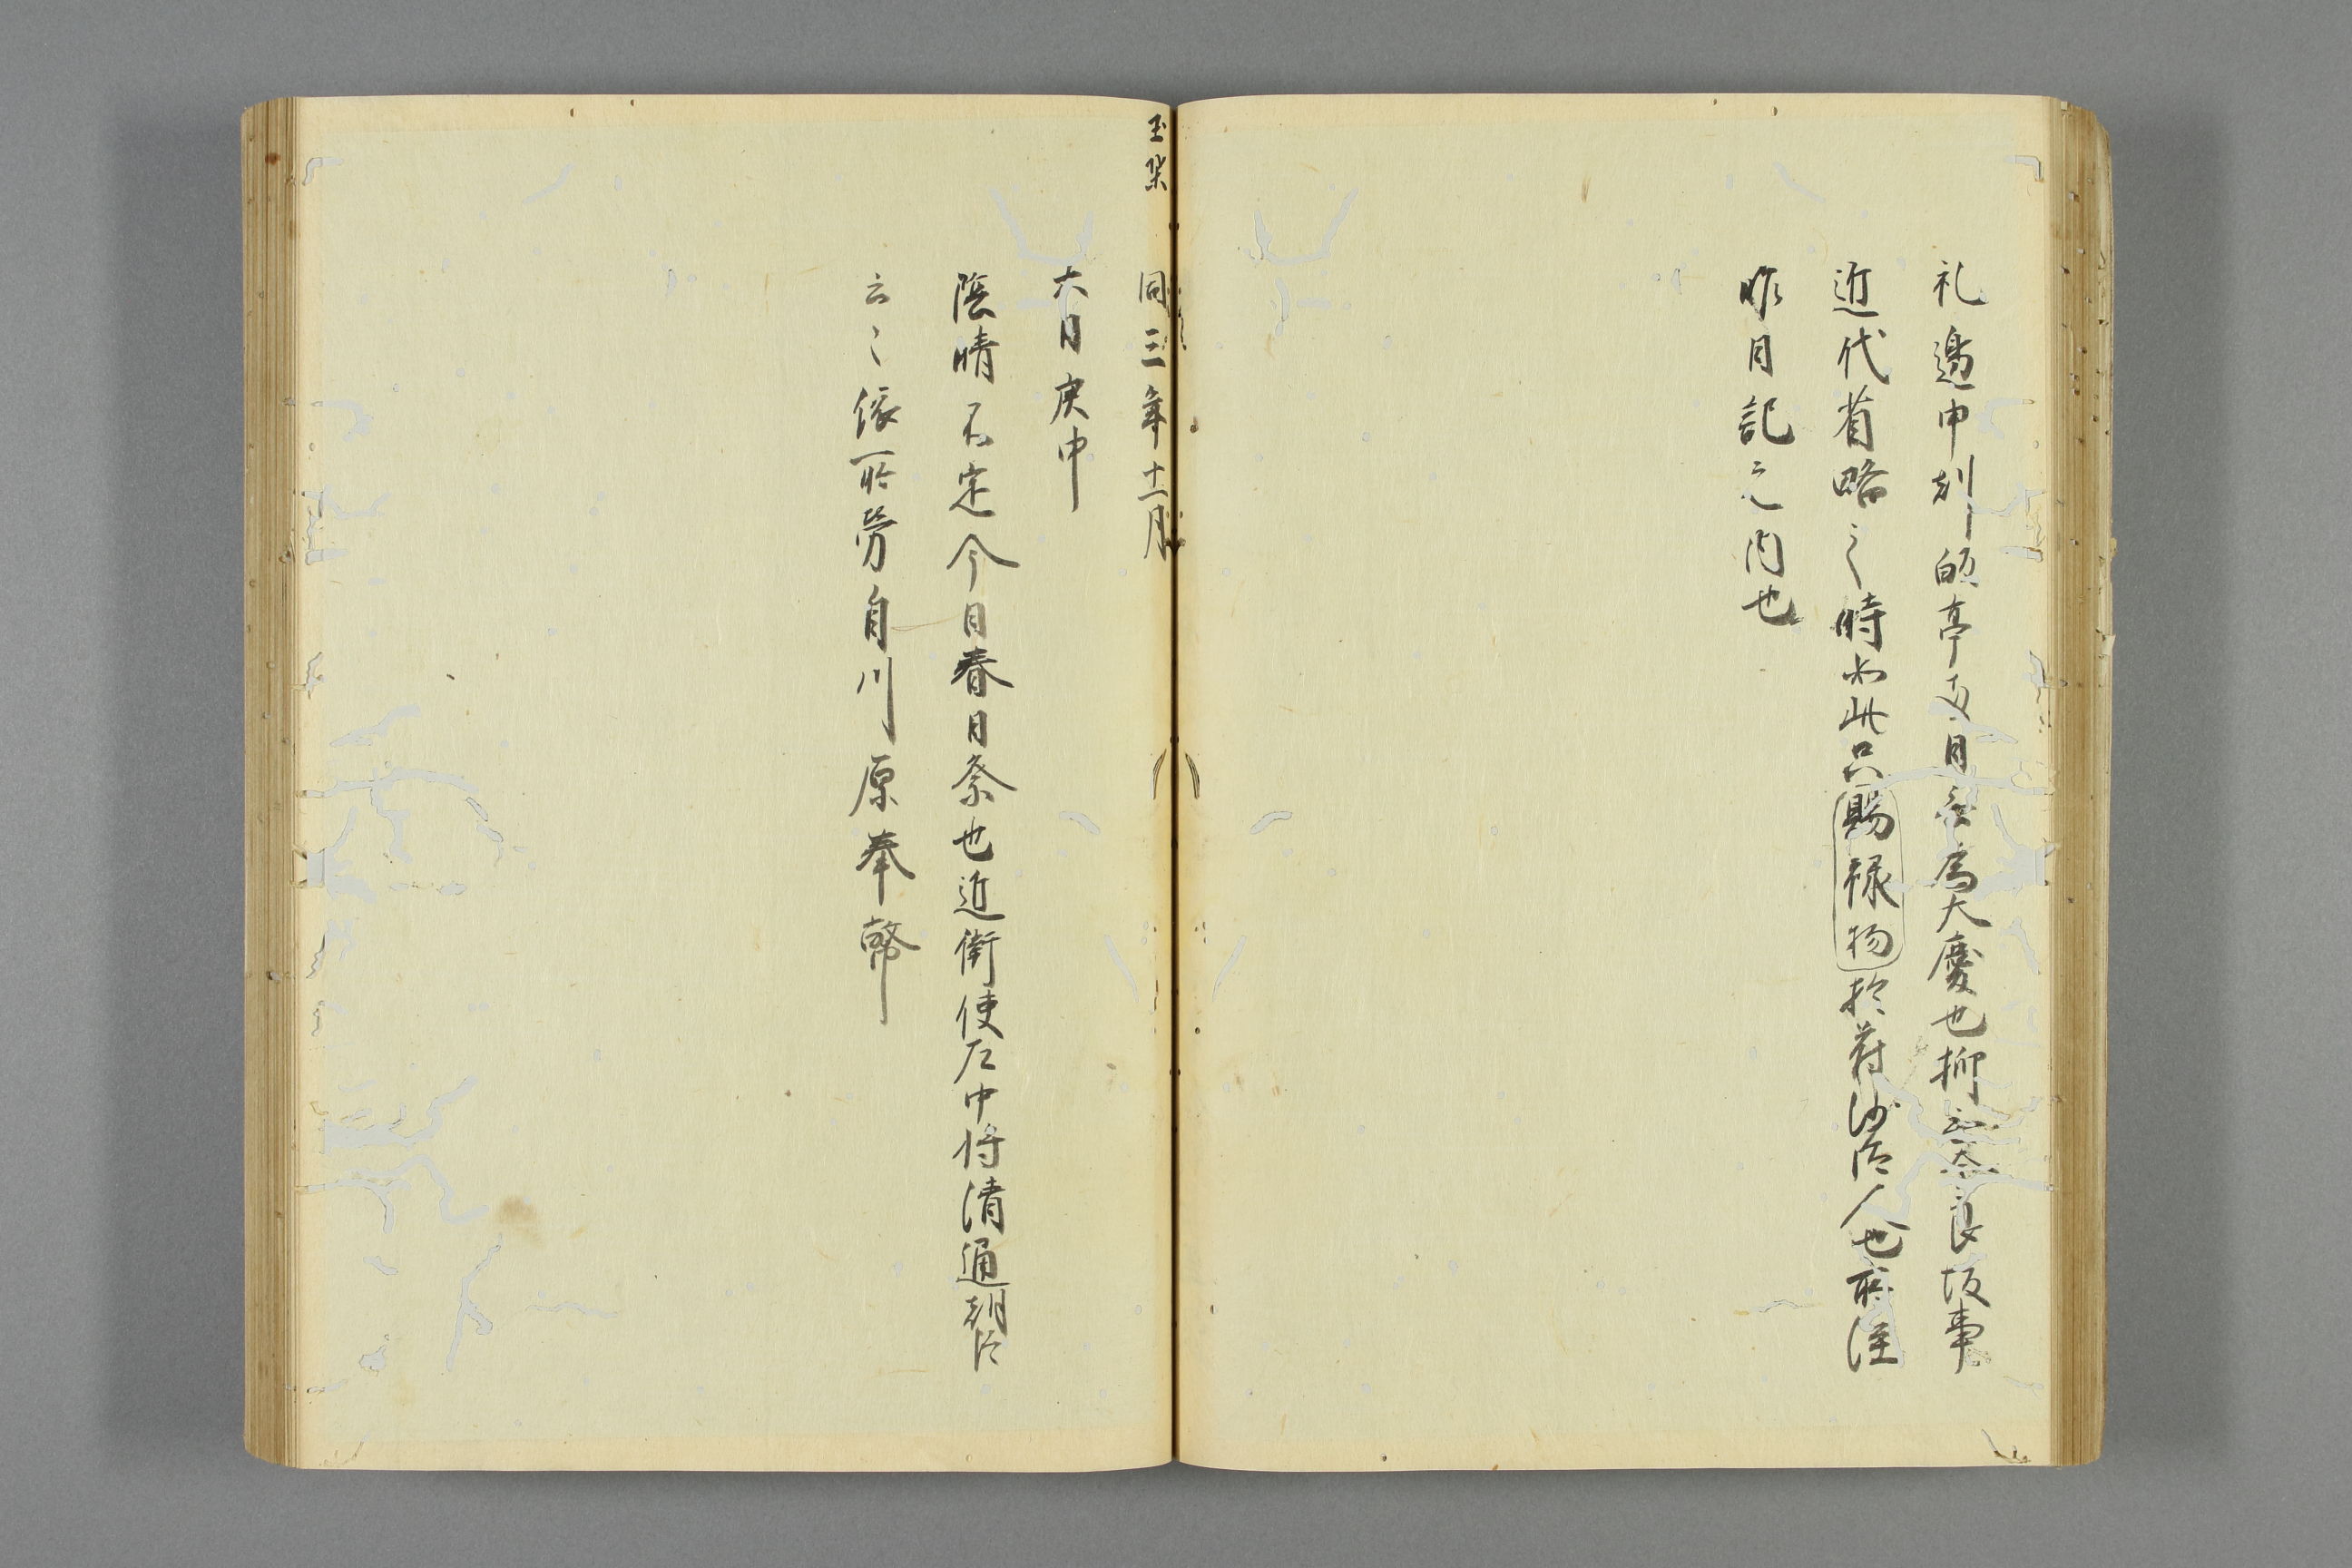 礼邊申刻 亭 為大慶也抑 奈良坂事
近代省略之時如此只賜禄物於 人也所注
昨日記之内也
玉葉
同三年十一月
六日庚申
陰晴不定今日春日祭也近衛使左中将清通朝臣
云々依所労自川原奉幣